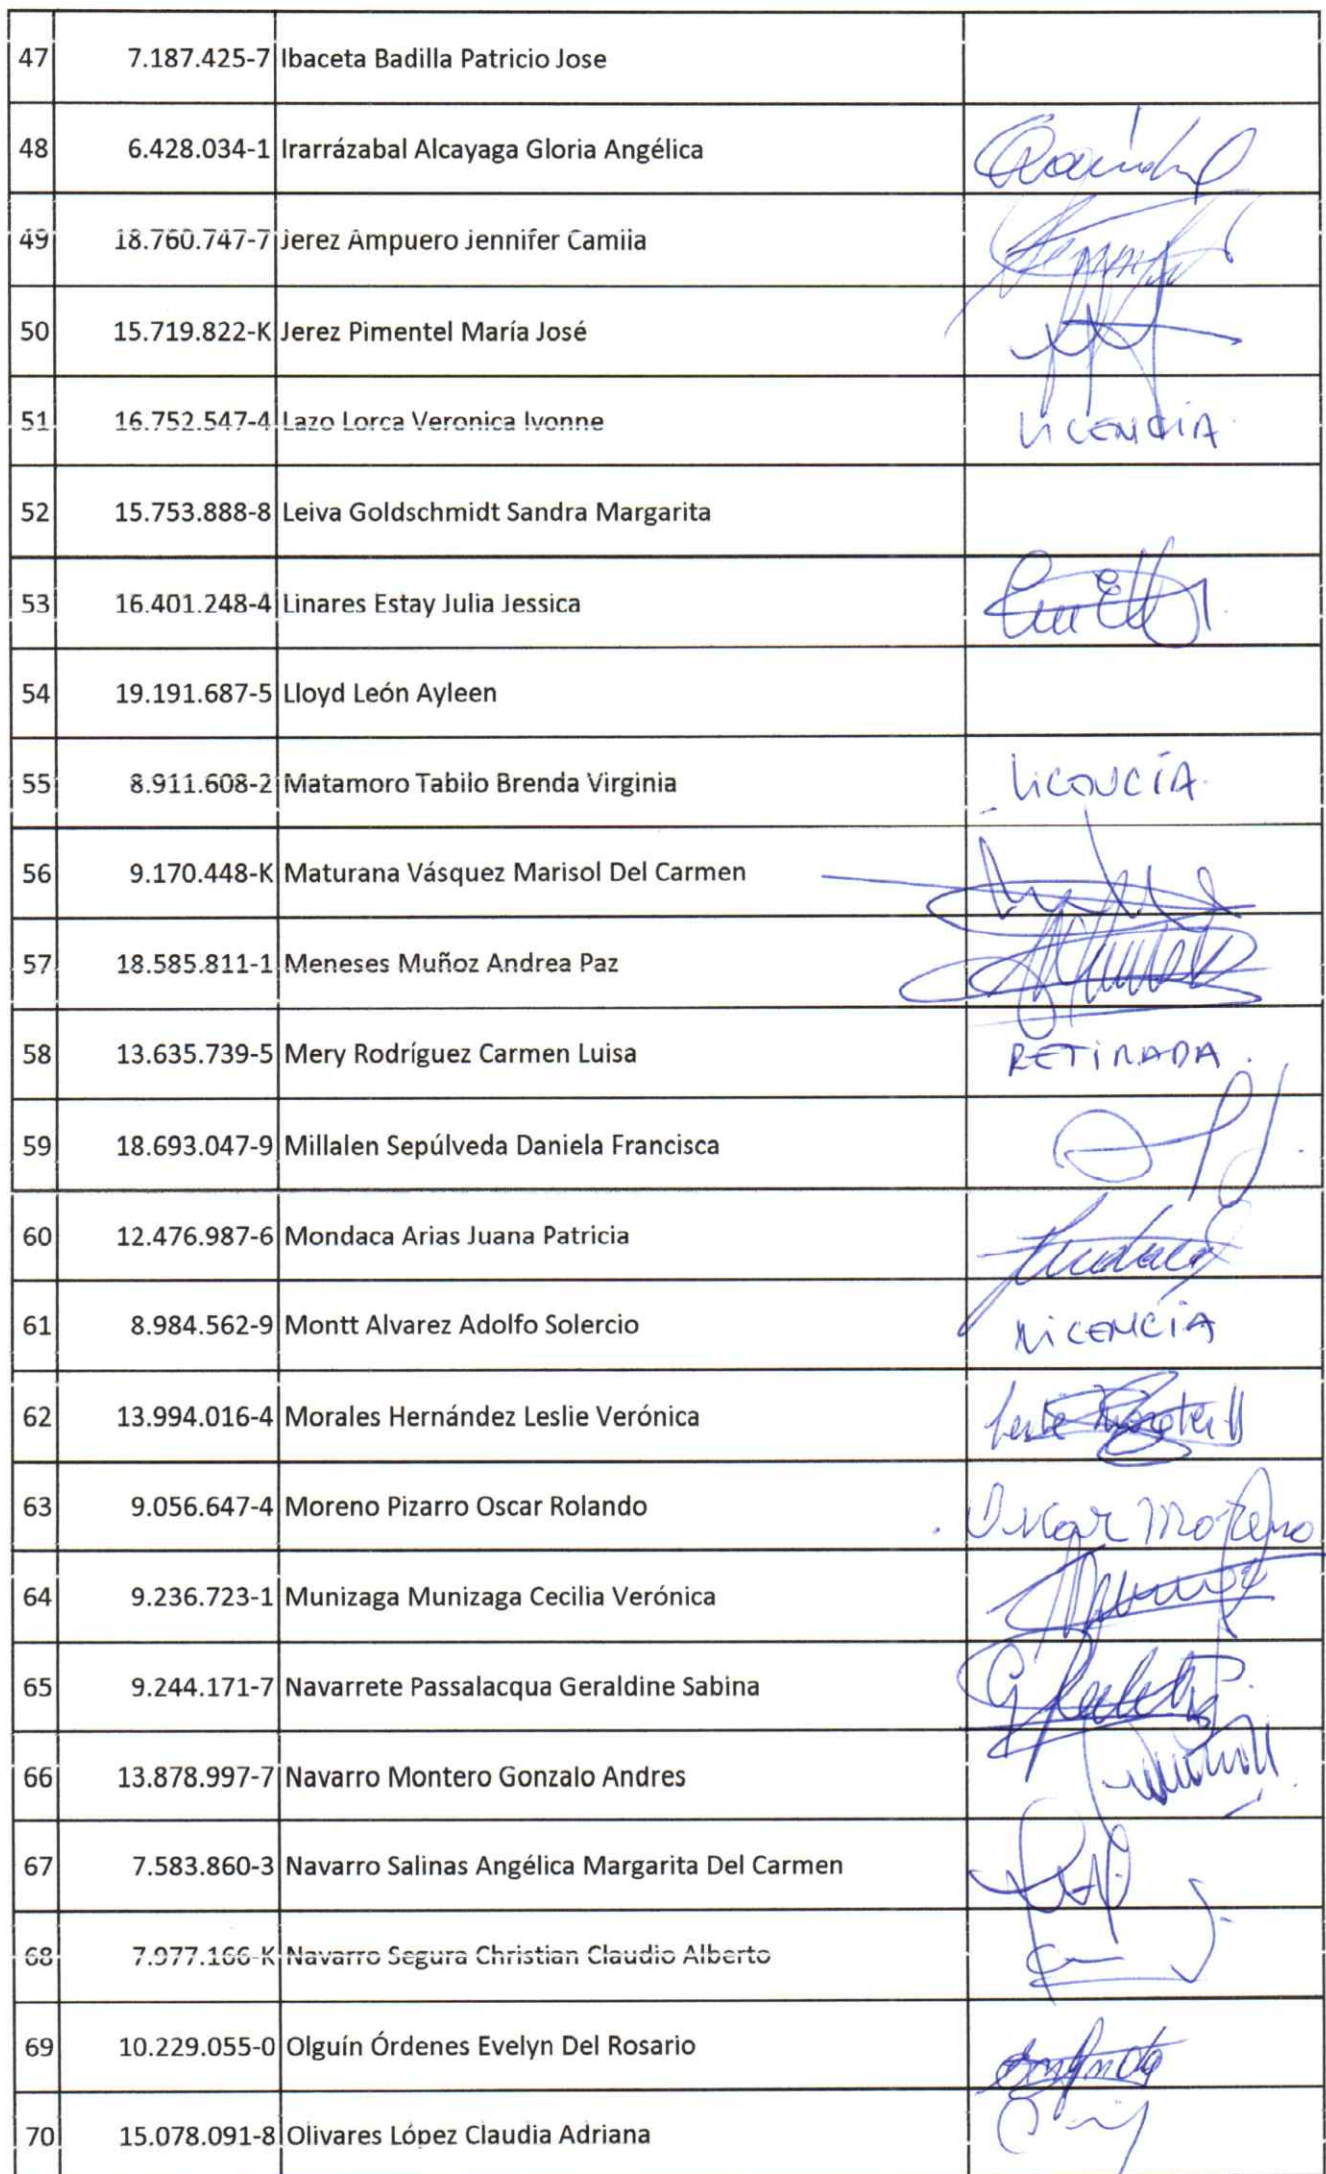 47 7.187.425-7 Ibaceta Badilla Patricio Jose
48 6.428.034-1 Irarrázabal Alcayaga Gloria Angélica
49 18.760.747-7 Jerez Ampuero Jennifer Camila
50 15.719.822-K Jerez Pimentel María José
51 16.752.547-4 Lazo Lorca Veronica Ivonne LICENCIA
52 15.753.888-8 Leiva Goldschmidt Sandra Margarita
53 16.401.248-4 Linares Estay Julia Jessica
54 19.191.687-5 Lloyd León Ayleen
55 8.911.608-2 Matamoro Tabilo Brenda Virginia LICENCÍA
56 9.170.448-K Maturana Vásquez Marisol Del Carmen
57 18.585.811-1 Meneses Muñoz Andrea Paz
58 13.635.739-5 Mery Rodríguez Carmen Luisa RETIRADA.
59 18.693.047-9 Millalen Sepúlveda Daniela Francisca
60 12.476.987-6 Mondaca Arias Juana Patricia
61 8.984.562-9 Montt Alvarez Adolfo Solercio LICENCIA
62 13.994.016-4 Morales Hernández Leslie Verónica
63 9.056.647-4 Moreno Pizarro Oscar Rolando Oscar Moreno
64 9.236.723-1 Munizaga Munizaga Cecilia Verónica
65 9.244.171-7 Navarrete Passalacqua Geraldine Sabina
66 13.878.997-7 Navarro Montero Gonzalo Andres
67 7.583.860-3 Navarro Salinas Angélica Margarita Del Carmen
68 7.977.166-K Navarro Segura Christian Claudio Alberto
69 10.229.055-0 Olguín Órdenes Evelyn Del Rosario
70 15.078.091-8 Olivares López Claudia Adriana